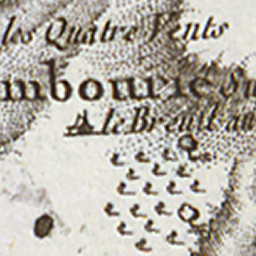 les Quatre Vents
mbourie Su
le Breuil au